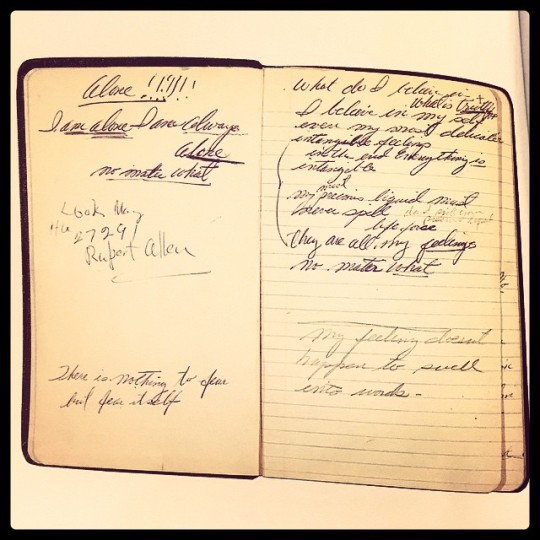 Alone !!!!!!
I am alone I am always
alone
no mater what
Look May
2729
Rupert Allen
There is nothing to fear
but fear itself
What do I believe in
What is truth
I believe in my self
even my most delicate
intangible feelings
in the end everything is
intangible
most
my precious liquid must
never spill
life force
they are all my feelings
no mater what
My feeling doesnt
happen to swell
into words -